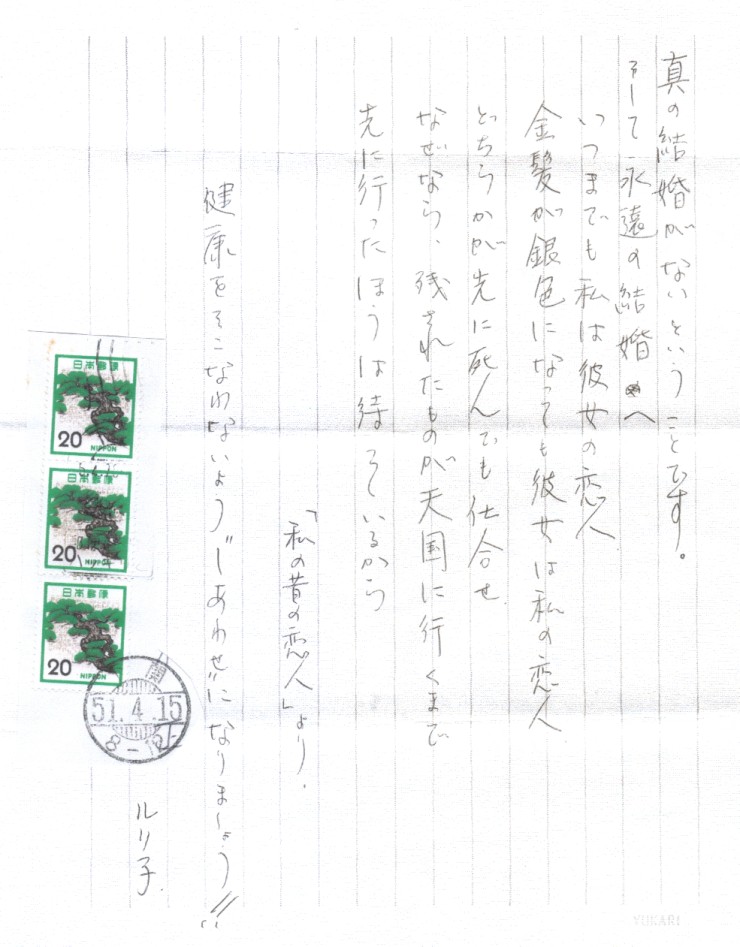 真の結婚がないということです。
そして永遠の結婚へ
いつまでも私は彼女の恋人
金髪が銀色になっても彼女は私の恋人
どちらかが先に死んでも仕合せ
なぜなら、残されたものが天国に行くまで
先に行ったほうは待っているから
「私の昔の恋人」より.
健康をそこなわないよう“しあわせ”になりましょう!!
ルリ子
日本郵便
20
NIPPON
日本郵便
20
NIPPON
日本郵便
20
NIPPON
51.4.15
YUKARI